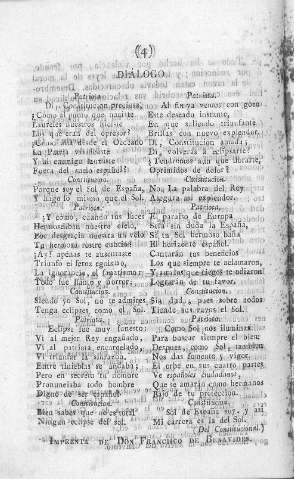 (4)
DIALOGO.
Patriota.
Di, Constitucion preciosa,
¿Cómo al punto que naciste
Laureles nuestros hiciste
Los que eran del opresor?
¿Cómo allá desde el Occeano
La Patria
Y al enemigo
Fuera del suelo español?
Constitucion.
Porque soy el Sol de España,
Y hago lo mismo que el Sol.
Patriota.
¿Y cómo, cuando tus luces
Hermoseaban nuestro cielo,
Por desgracia nuestra un velo
Tu hermoso rostro cubrió?
¡Ay! apenas te ausentaste
Triunfó el feroz egoismo,
La ignorancia, el fanatismo;
Todo fue llanto y horror.
Constitucion.
Siendo yo Sol, no te admires
Tenga eclipses como el Sol.
Patriota.
Eclipse fue muy funesto:
Vi al mejor Rey engañado,
Vi al patriota encarcelado,
Vi triunfar la sinrazon.
Entre tinieblas se andaba;
Pero en siendo tu nombre
Pronunciaba todo hombre
Digno de ser español
Constitucion.
Bien sabes que no es total
Ningun eclipse del sol.
Patriota.
Al fin ya vemos con gozo
Este deseado instante,
En que saliendo triunfante
Brillas con nuevo esplendor.
Di, Constitucion amada,
¿Di, volverás á eclipsarte?
¿Tendremos aun que llorarte,
Oprimidos de dolor?
Constitucion.
No, La palabra del Rey
Asegura mi esplendor.
Patriota.
El paraiso de Europa
Será sin duda la España,
Si tu Sol hermoso baña
El horizonte español.
Contarán tus beneficios
Los que siempre te adoraron,
Y hasta los que ciegos te odiaron
Lograrán de tu favor.
Constitucion.
Sin dad, pues sobre todos
Tiende sus rayos el sol.
Patriota.
Como Sol nos iluminas
Para buscar siempre el bien;
Despues, como Sol, tambien
Nos das fomento y vigor,
El orbe en sus cuatro partes
Ve españoles ciudadanos,
Que se amarán como hermanos
Bajo de tu proteccion.
Constitucion.
Sol de España soy, y así
Mi carrera es la del Sol.
(Del Constitucional.)
IMPRENTA DE DON FRANCISCO DE BENAVIDES.